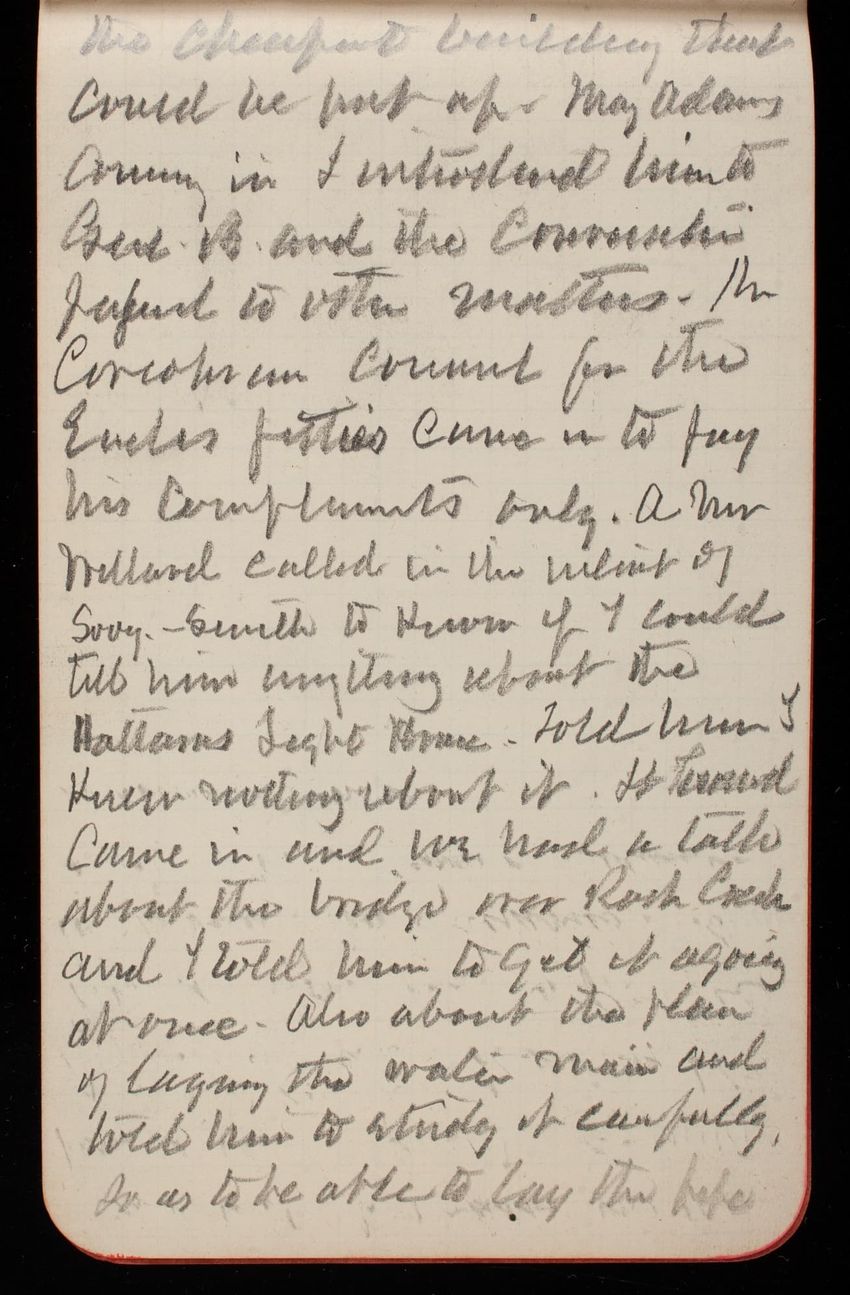 the cheapest building that
could be put up. Maj Adams
coming in I introduced him to
Genl. B. and the Conversation
passed to other matters. Mr
Corcoran Counsel for the
came in to pay
his compliments only. A Mr
Willard called in the interest of
Sooy-Smith to know if I could
tell him anything about the
Hatteras Light House. Told him I
knew nothing about it. Lt
Came in and we had a talk
about the bridge over Rock Creek
and I told him to get it agoing
at once. Also about the plan
of laying the water main and
told him to study it carefully,
so as to be able to lay the pipe